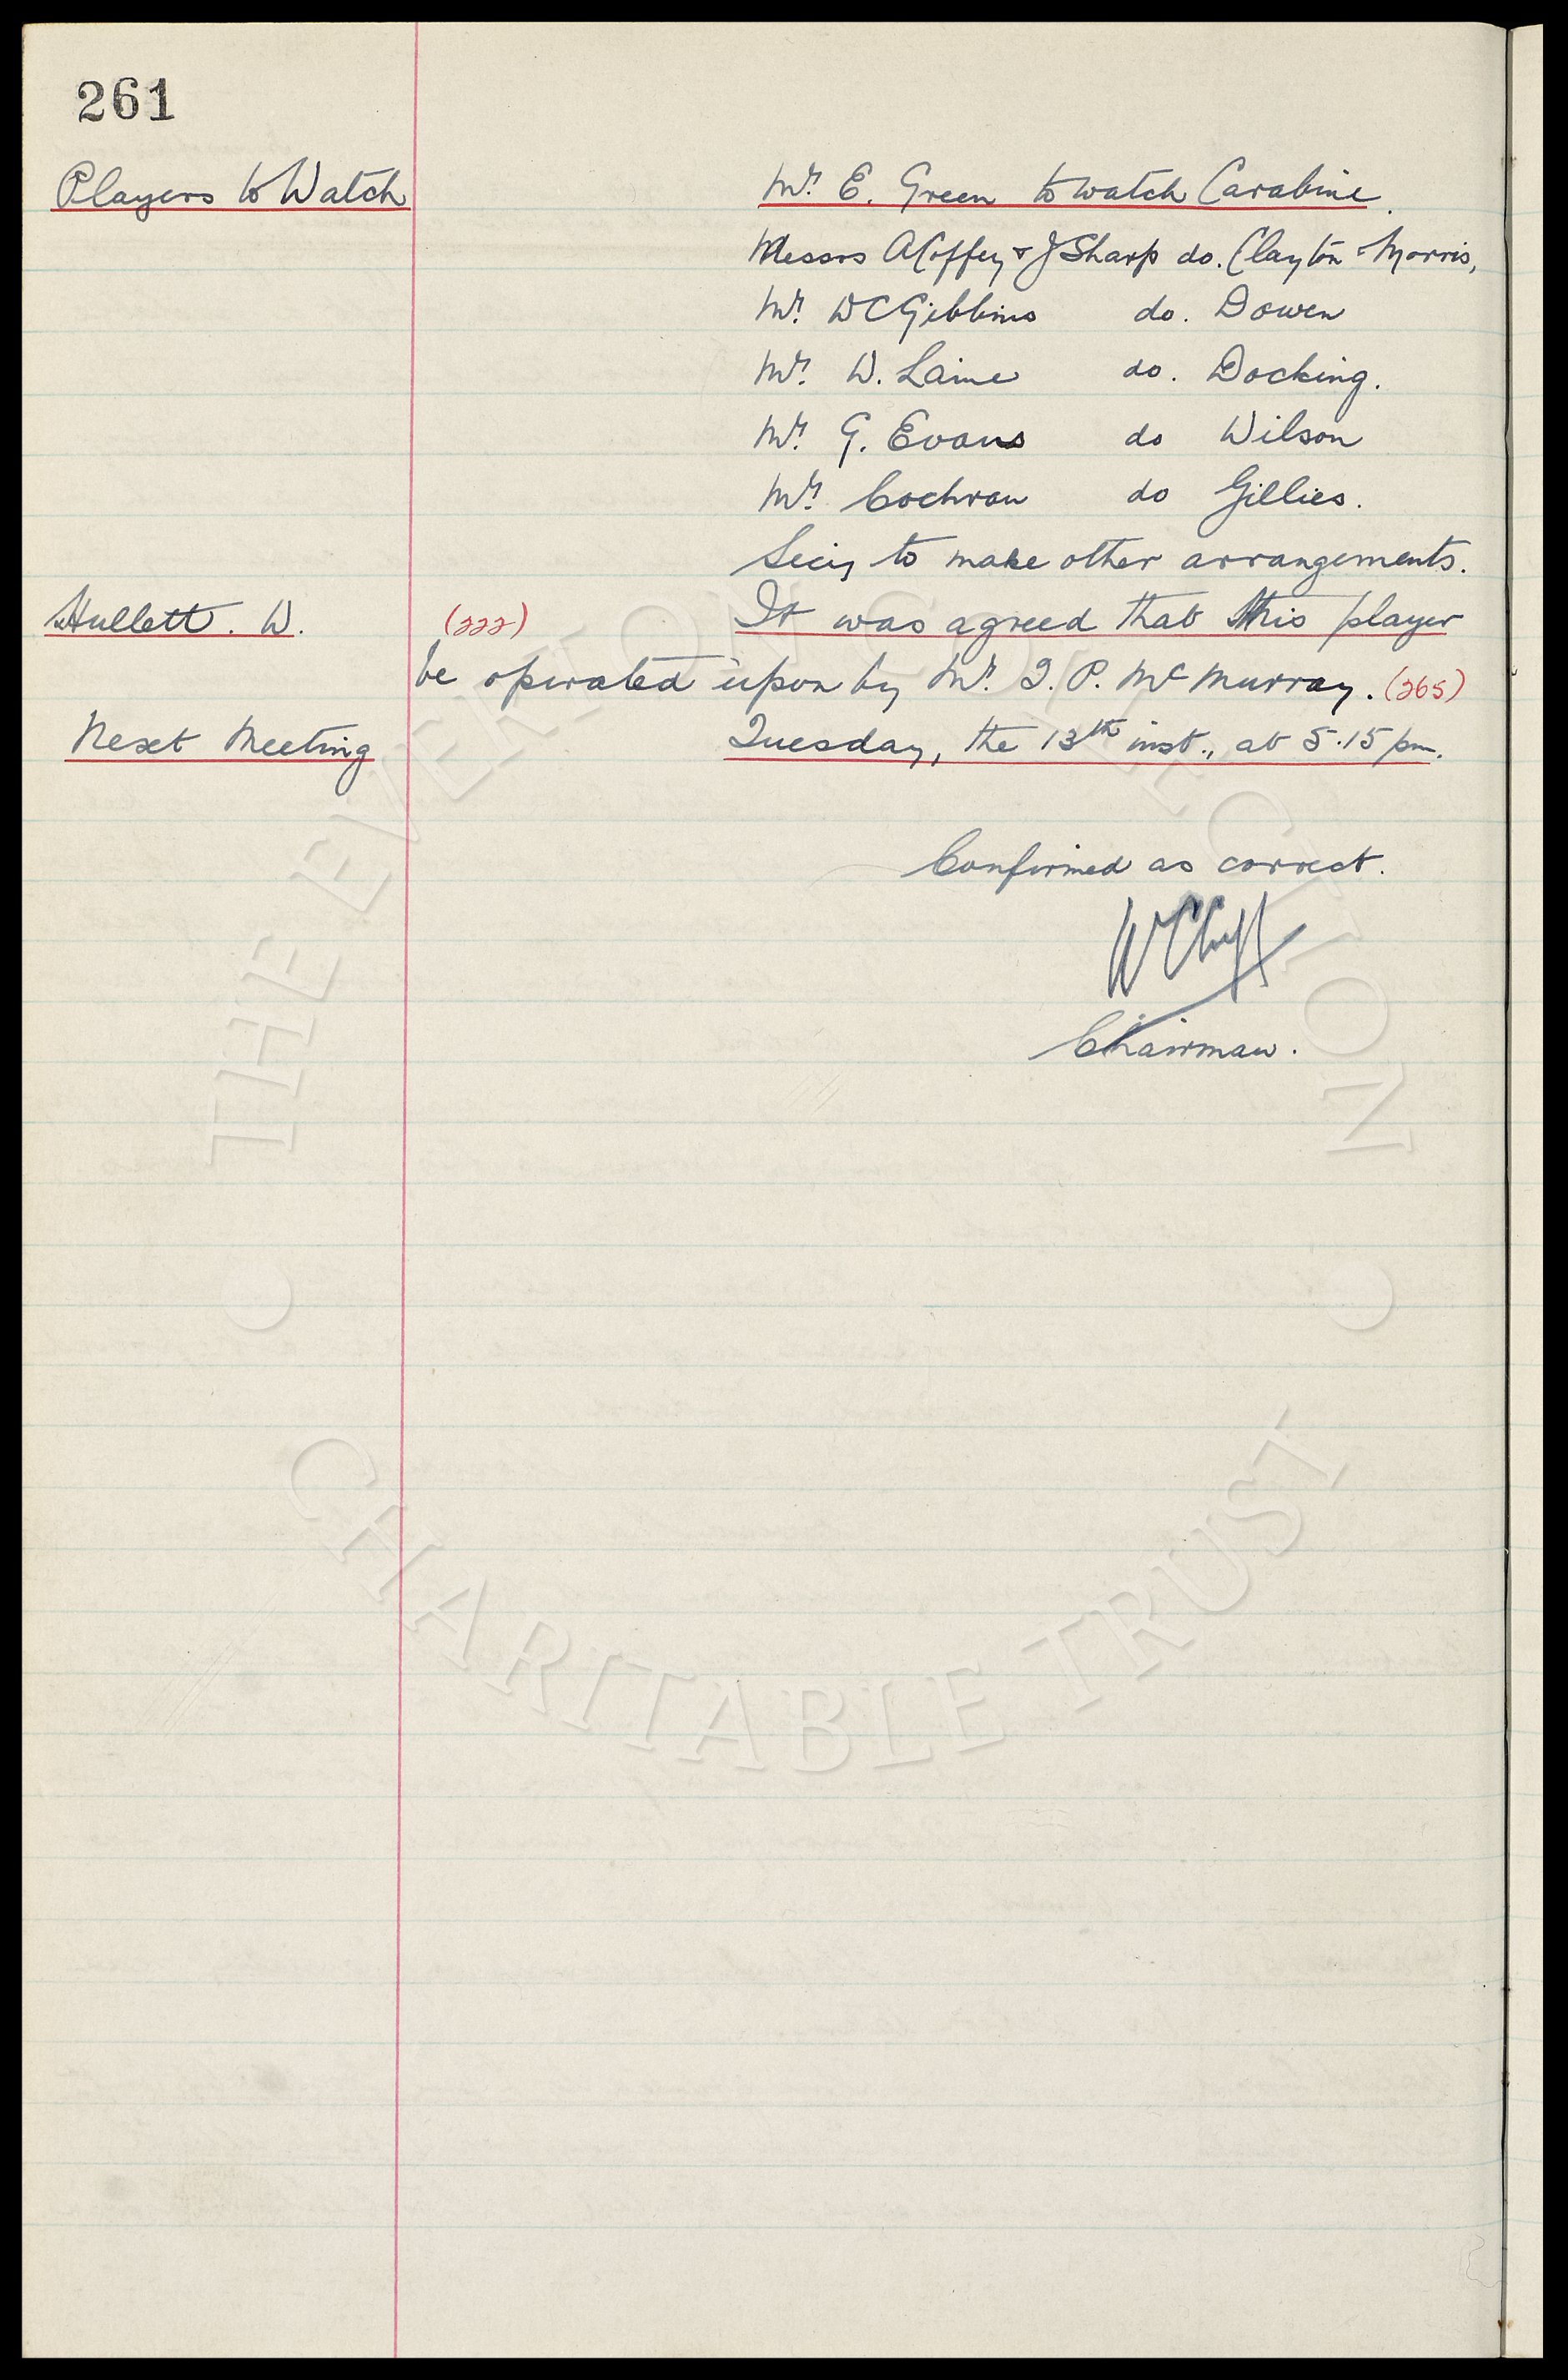 261
Players to Watch Mr. E. Green to watch Carabine.
Messrs A Coffey & J Sharp do. Clayton & Morris,
Mr. W C Gibbins do. Dowen
Mr. W. Laine do. Docking.
Mr. G. Evans do Wilson
Mr. Cochran do Gillies.
Secy to make other arrangements.
Hullett. W. (222) It was agreed that this player
be operated upon by Mr. T. P. McMurray. (265)
Next Meeting Tuesday, the 13th inst., at 5.15 pm.
Confirmed as correct.
W C Cuff
Chairman.
THE EVERTON COLLECTION
CHARITABLE TRUST